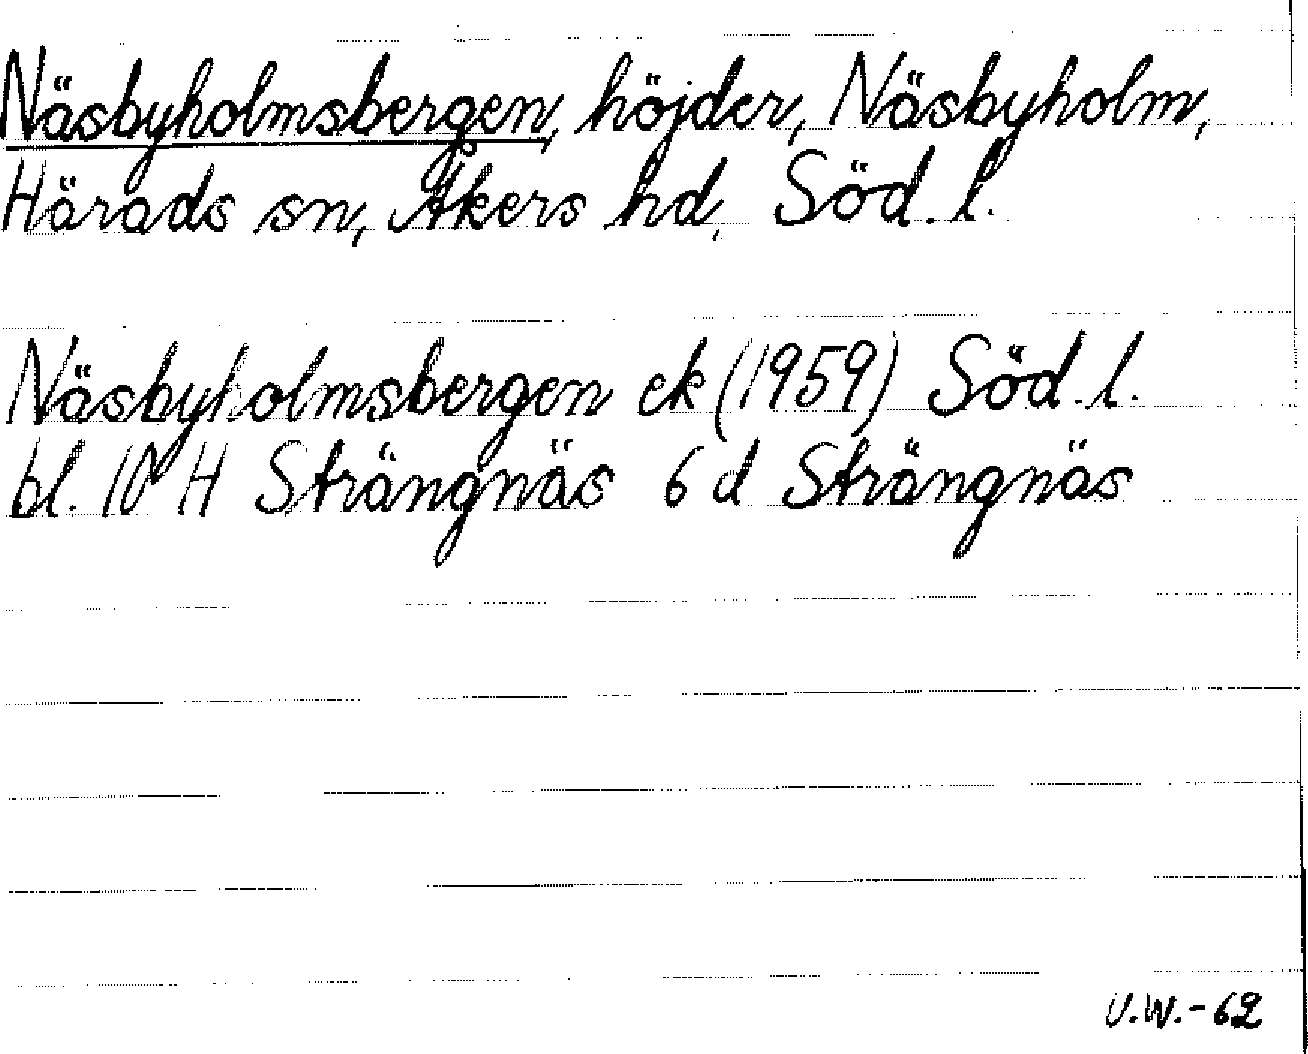 Näsbyholmsbergen, höjder, Näsbyholm,
Härads sn, Åkers hd, Söd. l.
Näsbyholmsbergen ek (1959) Söd. l.
bl. 10 H Strängnäs 6 d Strängnäs
U.W.-62